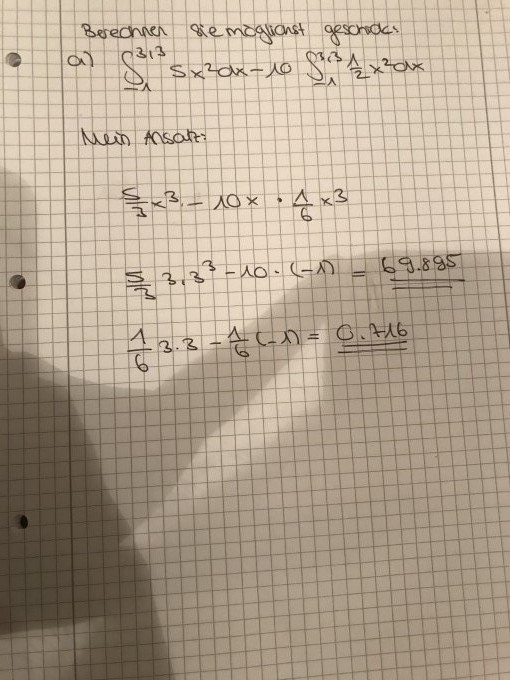 Berechnen Sie möglichst geschickt:
a) ∫_{-1}^{3,3} 5x²dx - 10 ∫_{-1}^{3,3} 1/2 x²dx
Mein Ansatz:
5/3 x³ - 10x · 1/6 x3
5/3 3,3³ - 10 · (-1) = 69.895
1/6 3.3 - 1/6 (-1) = 0.716